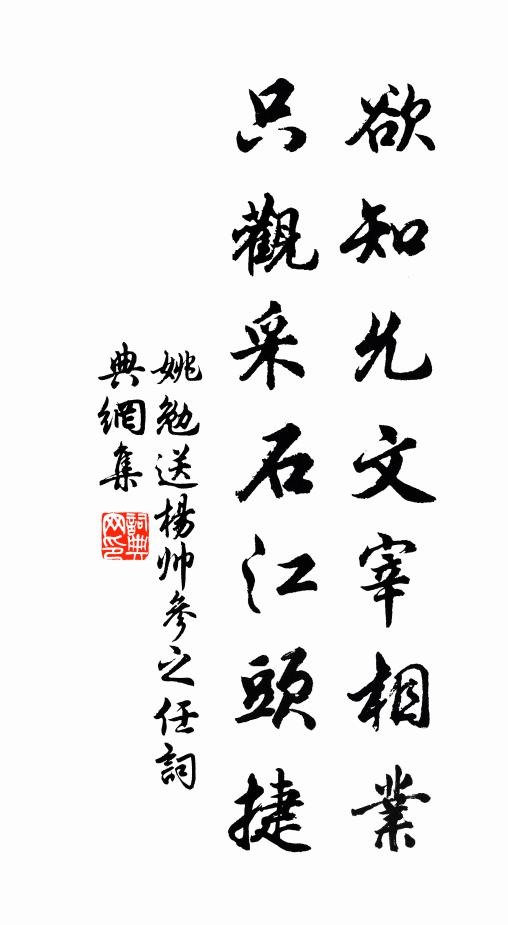 欲知允文宰相業
只觀采石江頭捷
姚勉送楊帅參之任詞
典網集
詞典网印